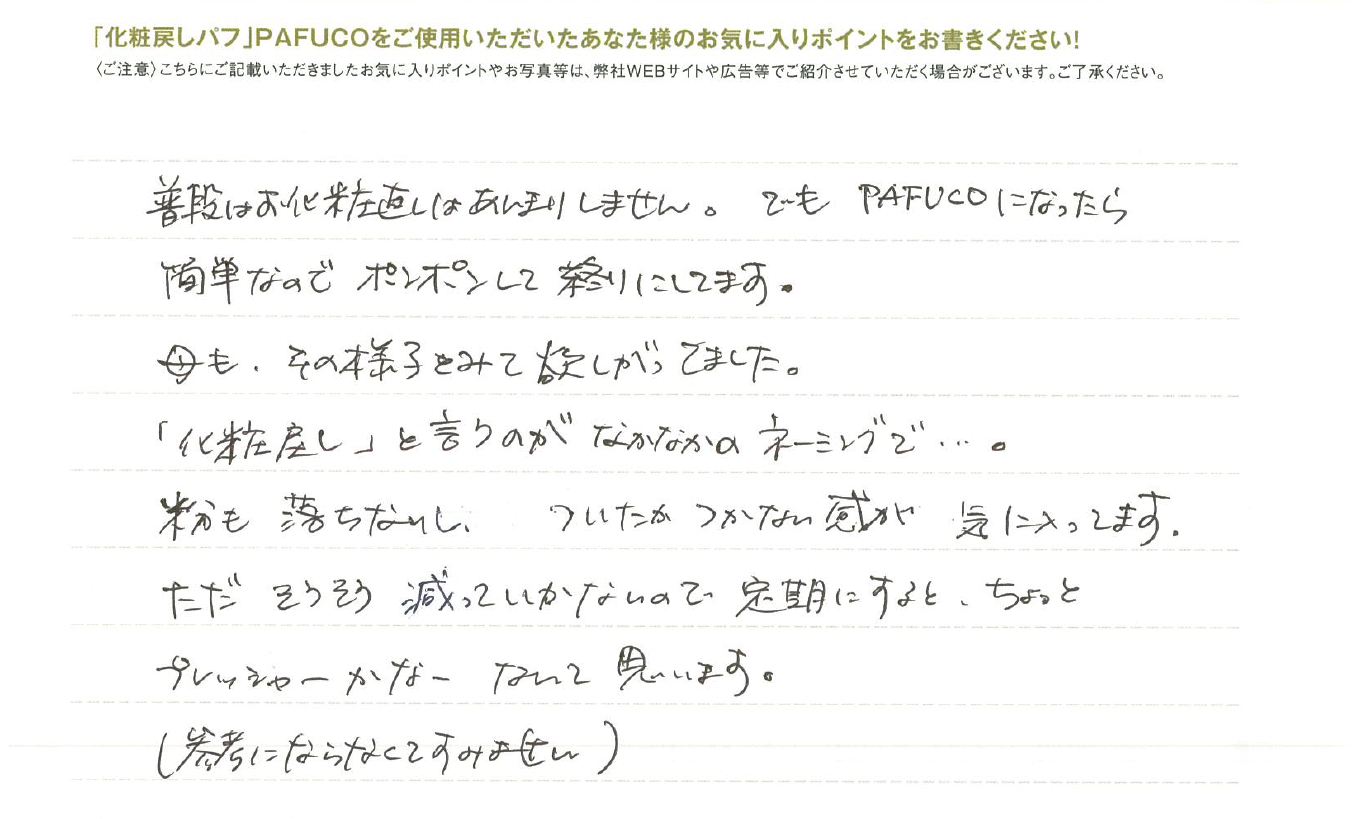 「化粧戻しパフ」PAFUCOをご使用いただいたあなた様のお気に入りポイントをお書きください!
〈ご注意〉こちらにご記載いただきましたお気に入りポイントやお写真等は、弊社WEBサイトや広告等でご紹介させていただく場合がございます。ご了承ください。
普段はお化粧直しはあんまりしません。でも PAFUCOになったら
簡単なので ポンポンして 終りにしてます。
母も、その様子をみて 欲しがってました。
「化粧戻し」と言うのが なかなかの ネーミングで…。
粉も 落ちないし、 ついたか つかない 感が 気に入ってます。
ただ そうそう 減っていかないので 定期にすると、ちょっと
プレッシャーかなー なんて 思います。
(参考にならなくてすみません)